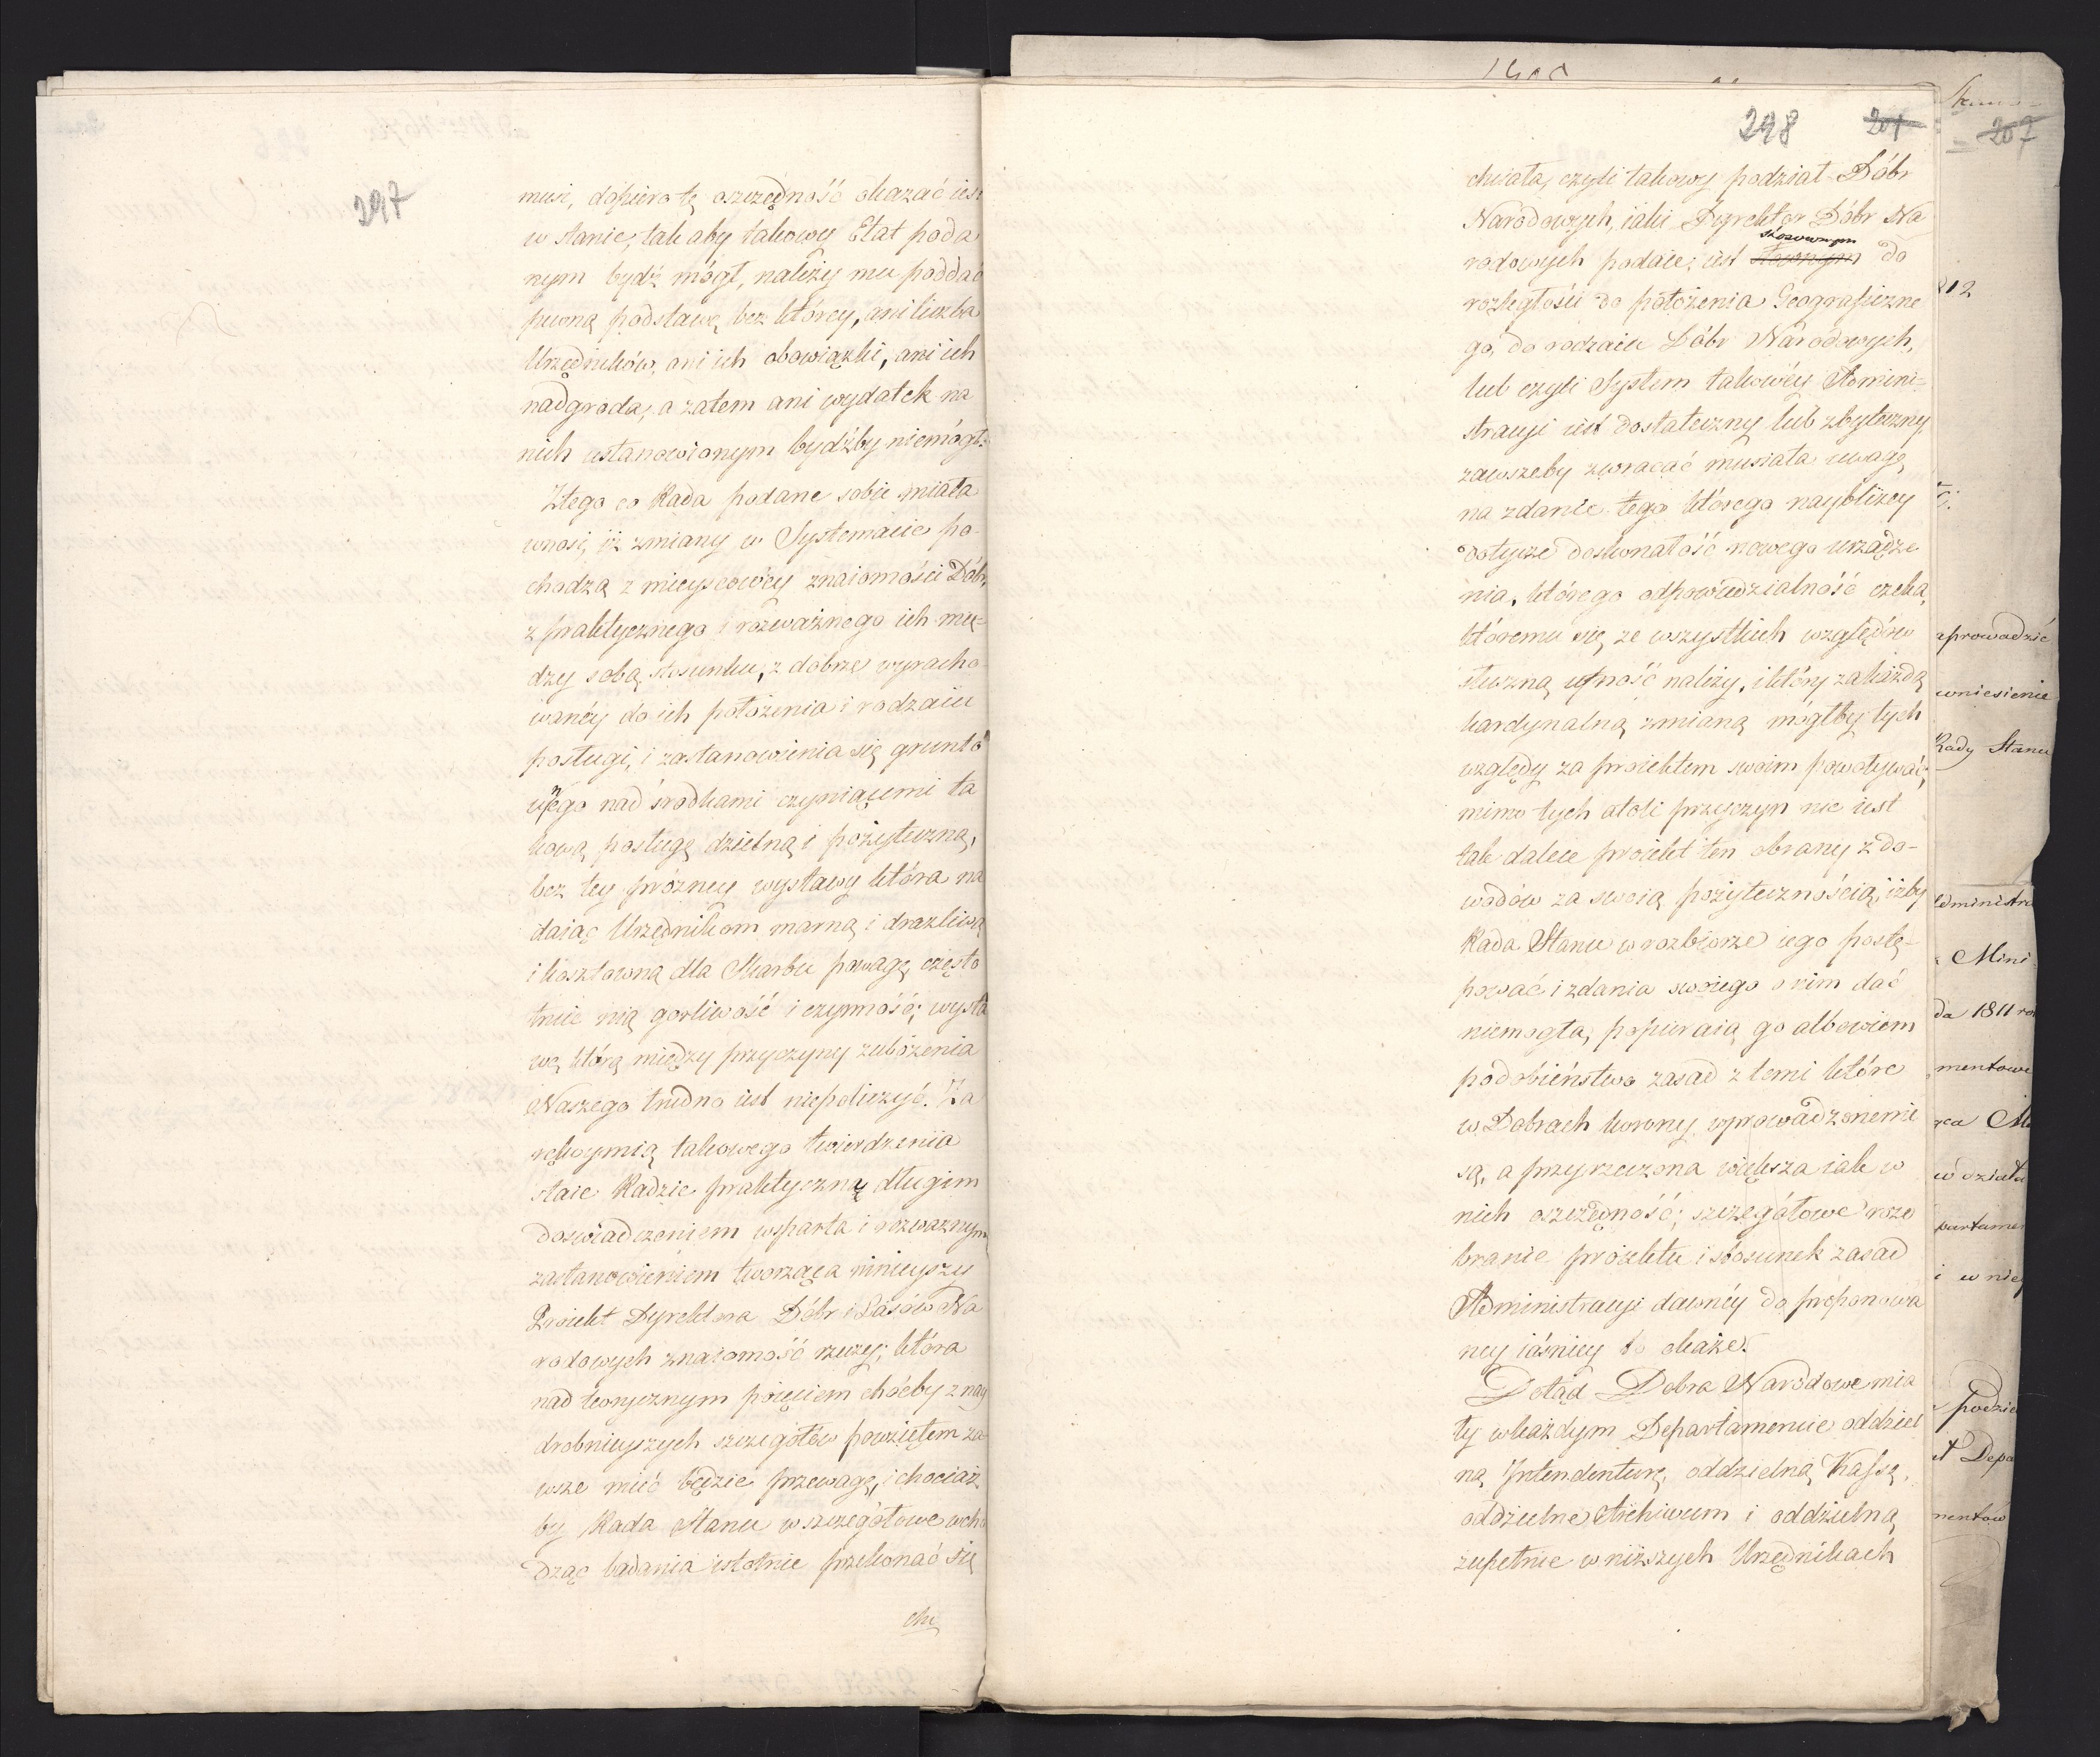 297
musi, dopiero tę oszczędność okazać iest
w stanie, tak aby takowy Etat poda
nym bydź mógł, należy mu poddać
pewną podstawę bez którey, ani liczba
Urzędników, ani ich obowiązki, ani ich
nadgroda, a zatem ani wydatek na
nich ustanowionym bydźby niemógł.
Ztego co Rada podane sobie miała
wnosi, iż zmiany w Systemacie po-
chodzą z mieyscowéy znaiomości Dóbr,
z praktycznego i rozważnego ich mię=
dzy sobą stosunku, z dobrze wyracho
wanéy do ich położenia i rodzaiu
posługi, i zastanowienia się grunto
wnego nad środkami czyniącemi ta
kową posługę dzielną i pożyteczną,
bez tey próżney wystawy która na
daiąc Urzędnikom marną i drażliwą
i kosztowną dla Skarbu powagę, często
tnie nią gorliwość i czynność; wysta
wę którą między przyczyny zubożenia
Naszego trudno iest niepoliczyć. Za
rękoymią takowego twierdzenia
staie Radzie praktyczną długim
doświadczeniem wsparta i rozważnym
zastanowieniem tworząca ninieyszy
Proiekt Dyrektora Dóbr i Lasów Na
rodowych znaiomość rzeczy; która
nad teorycznym poięciem choćby z nay
drobnieyszych szczegółów powziętem za
wsze mieć będzie przewagę, i chociaż
by Rada Stanu w szczegółowe wcho
dząc badania istotnie przekonać się
chc
298 207
chciała, czyli takowy podział Dóbr
Narodowych, iaki Dyrektor Dóbr Na
stosownym
rodowych podaie, iest do
rozległości do położenia Geograficzne
go, do rodzaiu Dóbr Narodowych,
lub czyli System takowéy Admini=
stracyi iest dostateczny lub zbyteczny,
zawszeby zwracać musiała uwagę
na zdanie tego którego naybliżey
dotycze doskonałość nowego urządze
nia, którego odpowiedzialność czeka,
któremu się ze wszystkich względów
słuszną ufność należy, i który za każdą
kardynalną zmianą mógłby tych
względy za proiektem swoim powoływać;
mimo tych atoli przyczyn nie iest
tak dalece proiekt ten obrany z do-
wodów za swoią pożytecznością, iżby
Rada Stanu w rozbiorze iego postę-
pować i zdania swoiego o nim dać
niemogła, popieraią go albowiem
podobieństwo zasad z temi które
w Dobrach korony wprowadzonemi
są, a przyrzeczona większa iak w
nich oszczędność; szczegółowe roze
branie proiektu i stosunek zasad
Administracyi dawnéy do proponowa
ney iaśniey to okaże.
Dotąd Dobra Narodowe mia
ły w każdym Departamencie oddziel
ną Intendenturę, oddzielną Kassę,
oddzielne Archiwum i oddzielną
zupełnie w niższych Urzędnikach
207
812
aprowadzić
wniesienie
Rady Stanu
Administra
Mini
da 1811 ro
mentowe
wdziała
partamen
i w niey
podzie
t Depa
mentów